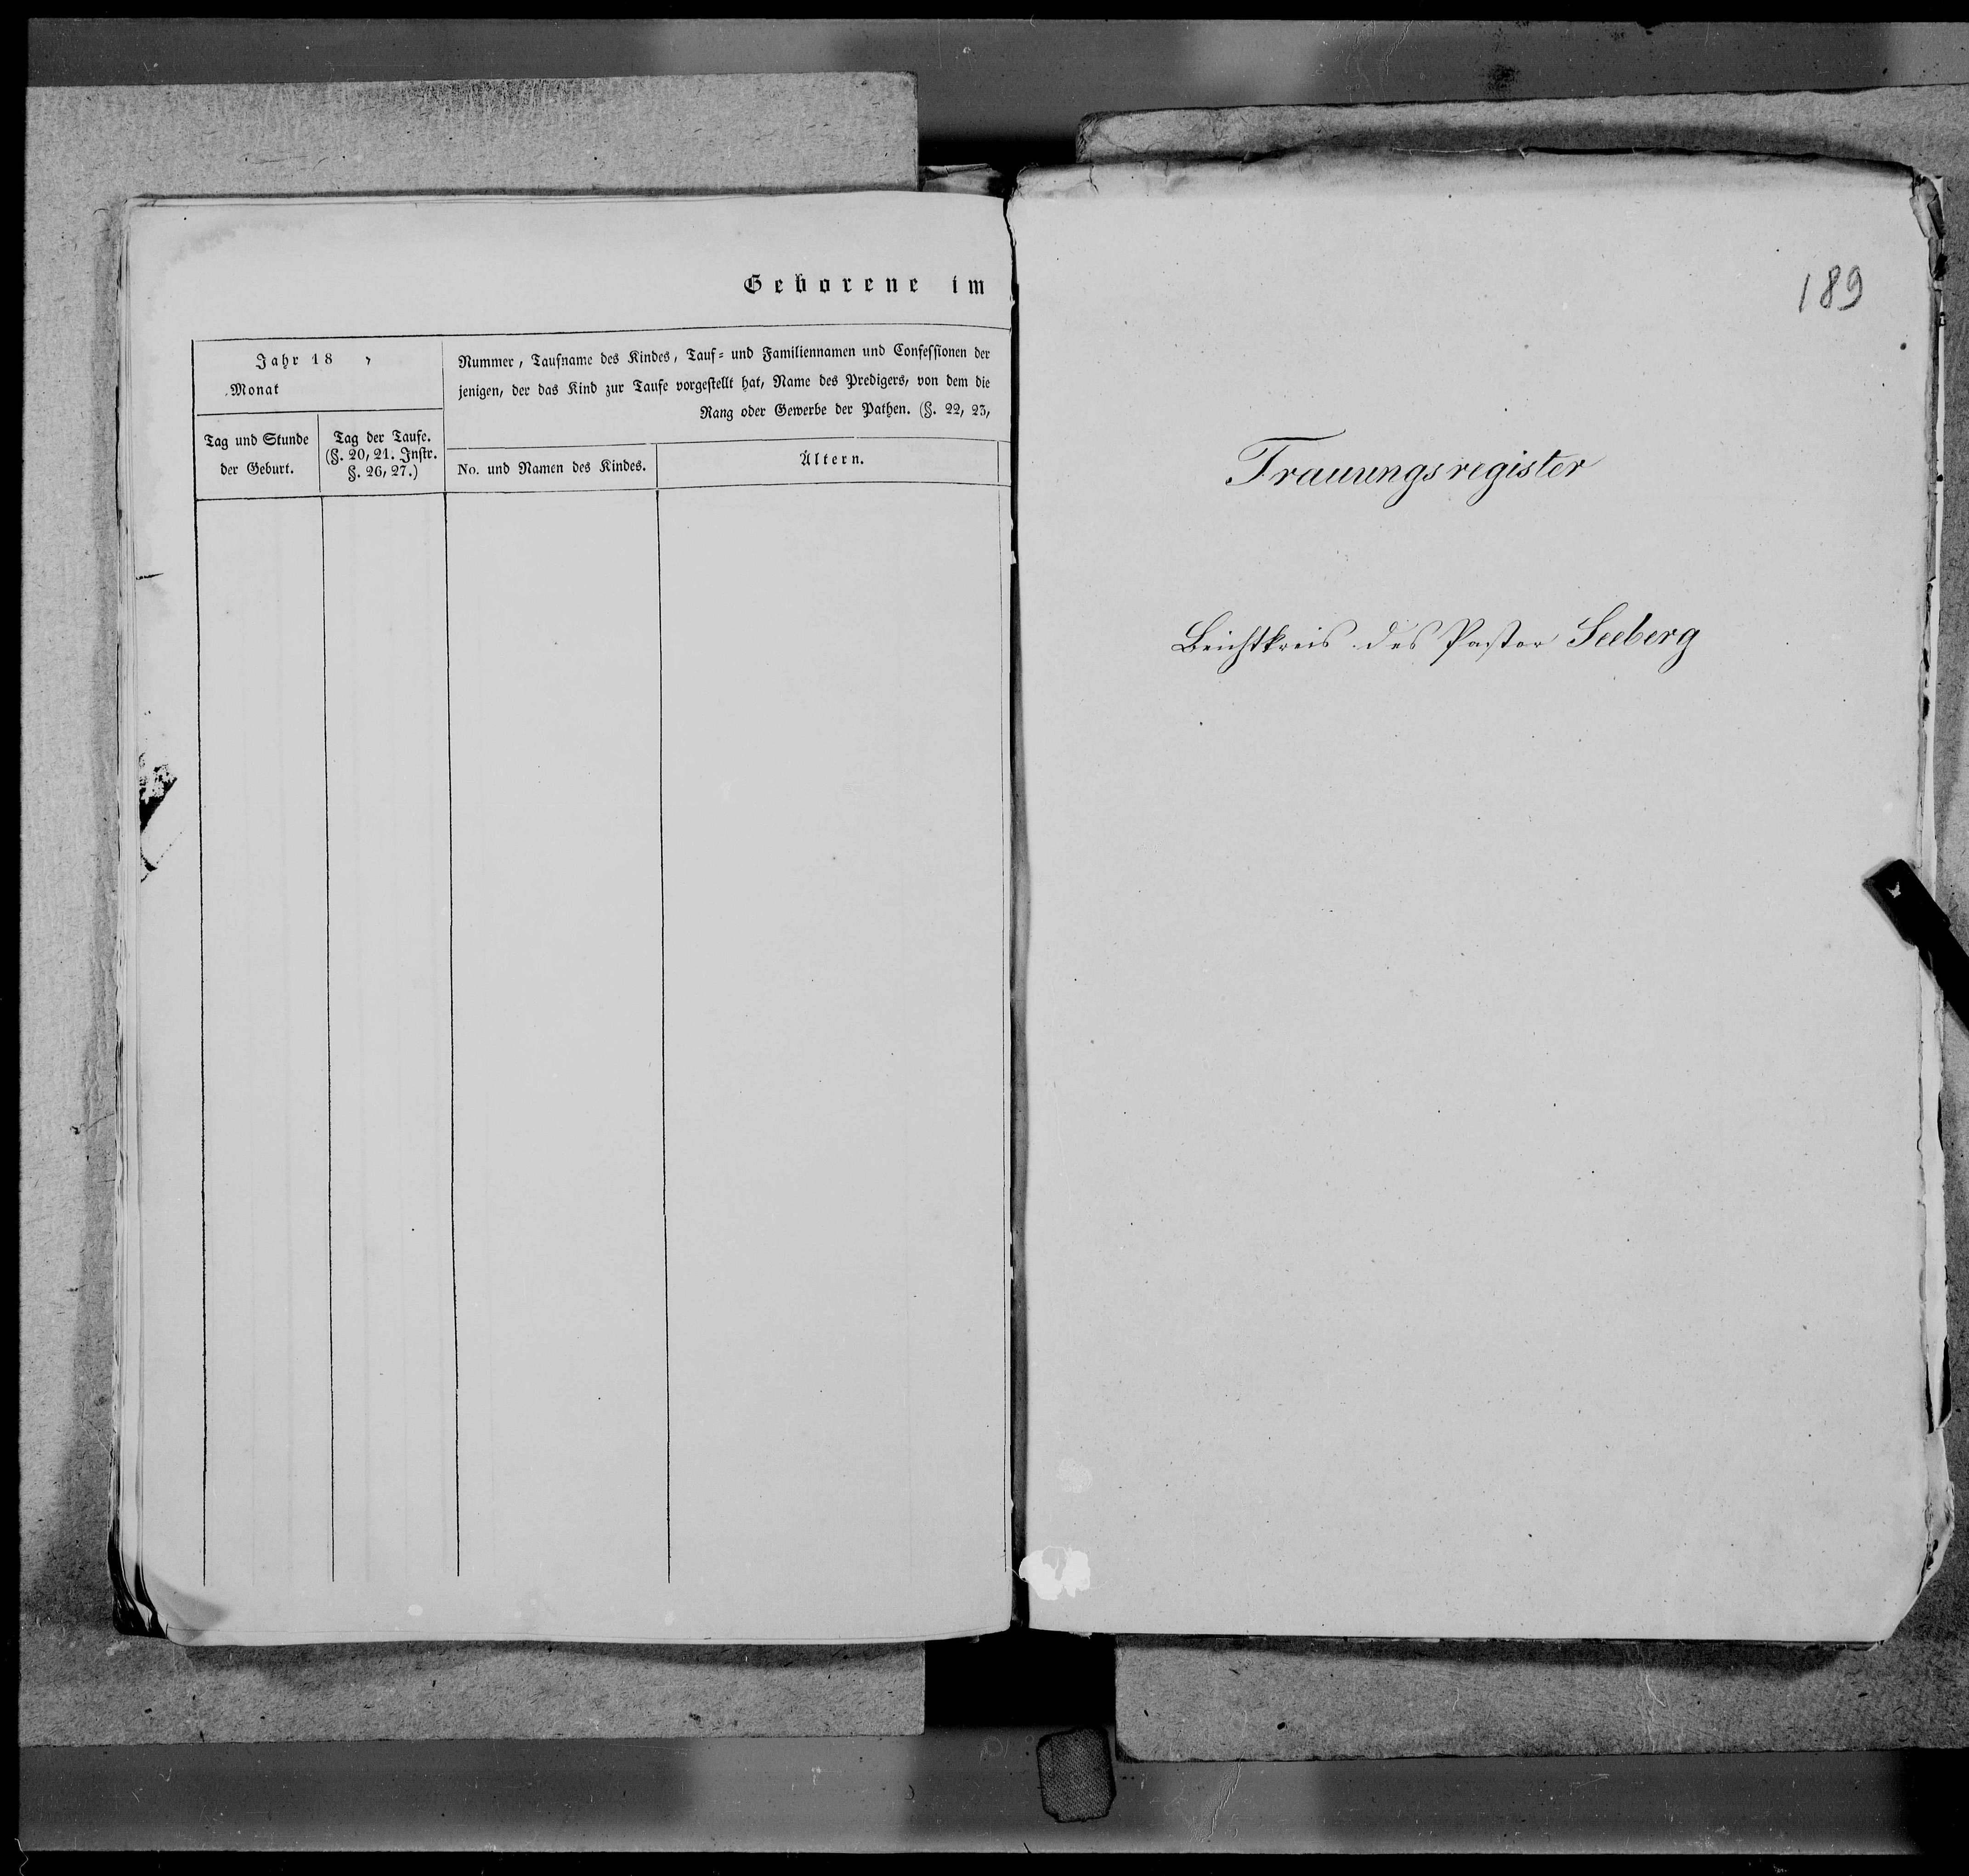 Geborene im
Jahr 18
Monat
Nummer, Taufname des Kindes, Tauf= und Familiennamen und Confessionen der
jenigen, der das Kind zur Taufe vorgestellt hat, Name des Predigers, von dem die
Rang oder Gewerbe der Pathen. (§. 22, 23,
Tag und Stunde
der Geburt.
Tag der Taufe.
(§. 20, 21. Instr.
§. 26, 27.)
No. und Namen des Kindes.
Ältern.
189
Trauungsregister
Beichtkreis des Pastor Seeberg